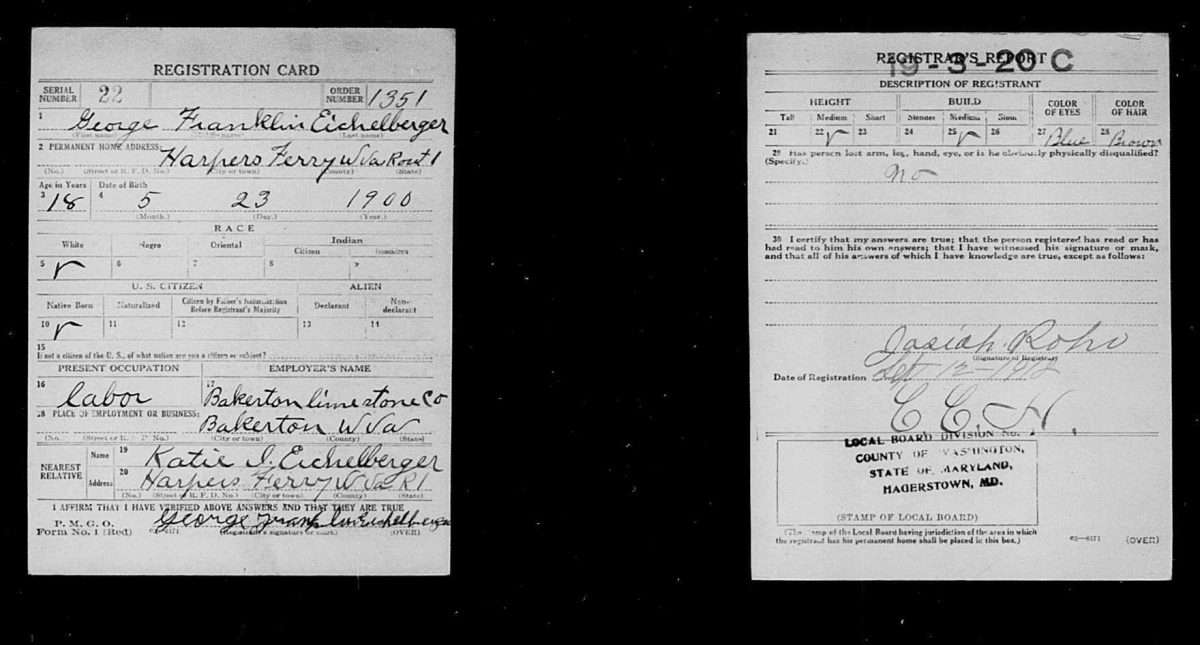 REGISTRATION CARD
SERIAL NUMBER 22 ORDER NUMBER 1351
1 George Franklin Eichelberger
(First name) (Last name)
2 PERMANENT HOME ADDRESS:
Harpers Ferry W Va Rout 1
(No.) (Street or R. F. D. No.) (City or town) (County) (State)
Age in Years Date of Birth
3 18 4 5 23 1900
(Month.) (Day.) (Year.)
RACE
White Negro Oriental Indian
Citizen
5 6 7 8
U. S. CITIZEN ALIEN
Native Born Naturalized Citizen by Father's Naturalization Before Registrant's Majority Declarant Non-declarant
10 11 12 13 14
15
If not a citizen of the U. S., of what nation are you a citizen or subject?
PRESENT OCCUPATION EMPLOYER'S NAME
16 labor 17 Bakerton limestone Co
18 PLACE OF EMPLOYMENT OR BUSINESS:
Bakerton W Va
(No.) (Street or R. F. D. No.) (City or town) (County) (State)
NEAREST RELATIVE Name 19 Katie I. Eichelberger
Address 20 Harpers Ferry W Va R1
(No.) (Street or R. F. D. No.) (City or town) (County) (State)
I AFFIRM THAT I HAVE VERIFIED ABOVE ANSWERS AND THAT THEY ARE TRUE
P. M. G. O.
Form No. 1 (Red) George Franklin Eichelberger
(Registrant's signature or mark) (OVER)
REGISTRAR'S REPORT
19-3-20 C
DESCRIPTION OF REGISTRANT
HEIGHT BUILD COLOR OF EYES COLOR OF HAIR
Tall Medium Short Slender Medium Stout
21 22 23 24 25 26 27 Blue 28 Brown
29 Has person lost arm, leg, hand, eye, or is he obviously physically disqualified?
(Specify.) no
30 I certify that my answers are true; that the person registered has read or has
had read to him his own answers; that I have witnessed his signature or mark,
and that all of his answers of which I have knowledge are true, except as follows:
Josiah
(Signature of Registrar)
Date of Registration Sept 12-1918
LOCAL BOARD DIVISION No.
COUNTY OF WASHINGTON,
STATE OF MARYLAND,
HAGERSTOWN, MD.
(STAMP OF LOCAL BOARD)
(The stamp of the Local Board having jurisdiction of the area in which
the registrant has his permanent home shall be placed in this box.)
(OVER)